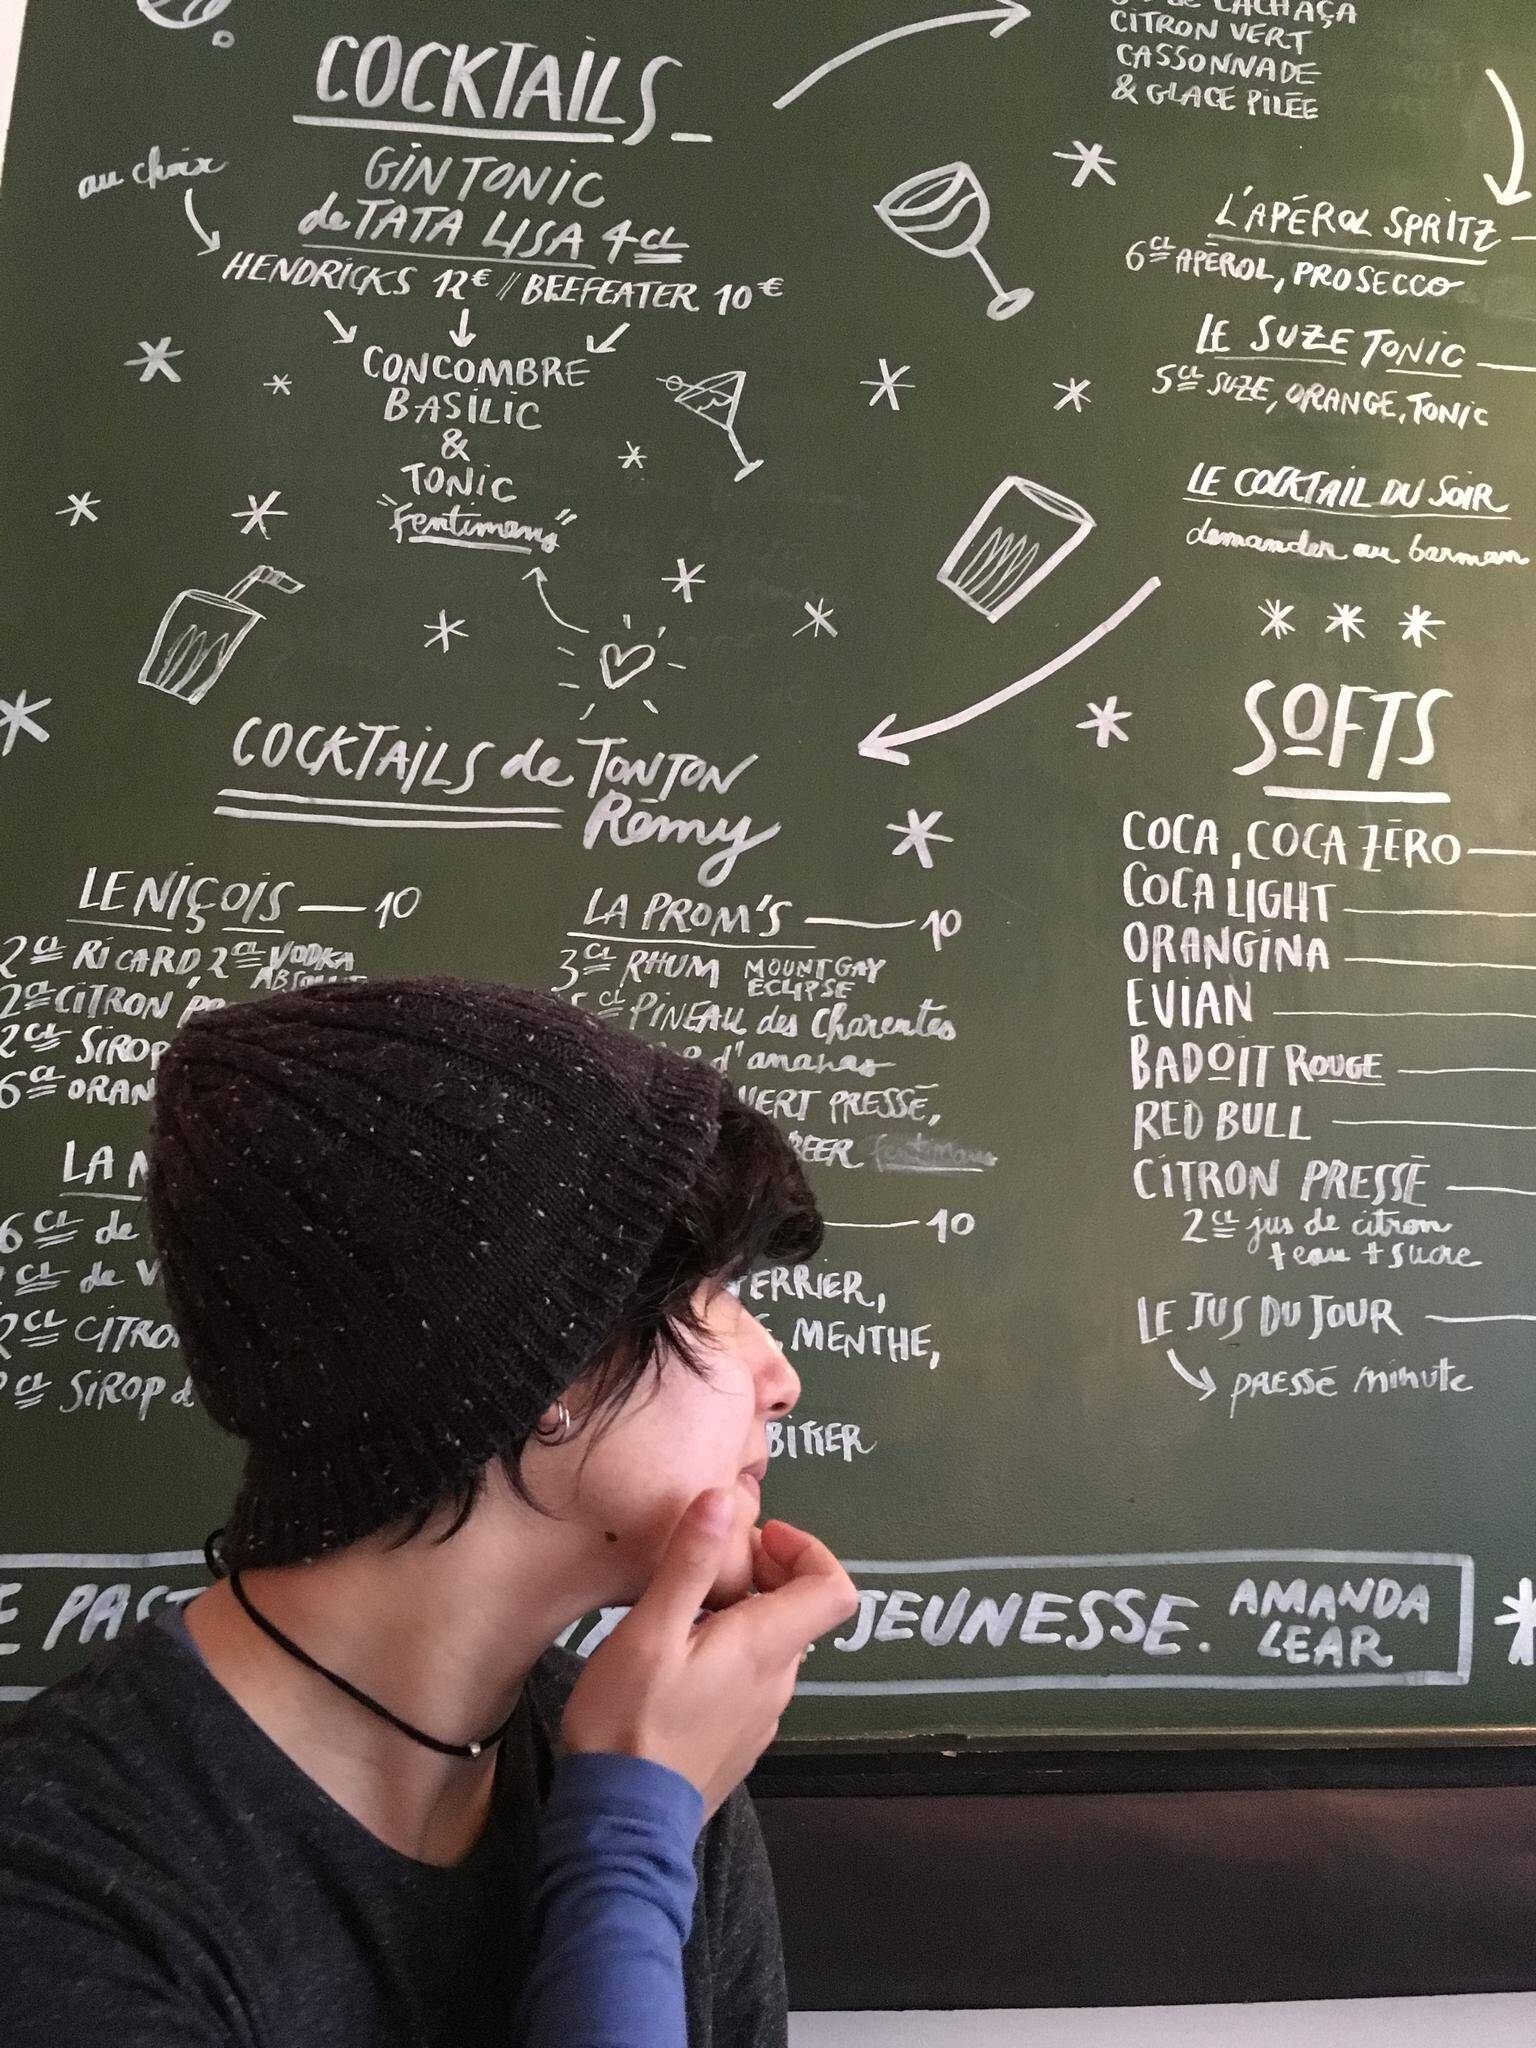 COCKTAILS
au choix
GIN TONIC
de TATA LISA 4CL
HENDRICKS 12€ // BEEFEATER 10€
CONCOMBRE
BASILIC
&
TONIC
"Fentimans"
COCKTAILS de TONTON
Rémy
LE NIÇOIS — 10
2CL RICARD, 2CL VODKA
2CL CITRON
2CL SIROP
6CL
LA
6CL de
CL de
2CL
CL SIROP
LA PROM'S — 10
3CL RHUM MOUNT GAY
ECLIPSE
CL PINEAU des Charentes
d'ananas
VERT PRESSÉ,
BEER Fentimans
— 10
MENTHE,
BITTER
CACHAÇA
CITRON VERT
CASSONNADE
& GLACE PILÉE
L'APÉROL SPRITZ
6CL APÉROL, PROSECCO
LE SUZE TONIC
5CL SUZE, ORANGE, TONIC
LE COCKTAIL DU SOIR
demander au barman
SOFTS
COCA, COCA ZÉRO
COCA LIGHT
ORANGINA
EVIAN
BADOIT ROUGE
RED BULL
CITRON PRESSÉ
2CL jus de citron
+ eau + sucre
LE JUS DU JOUR
PRESSÉ minute
JEUNESSE. AMANDA
LEAR